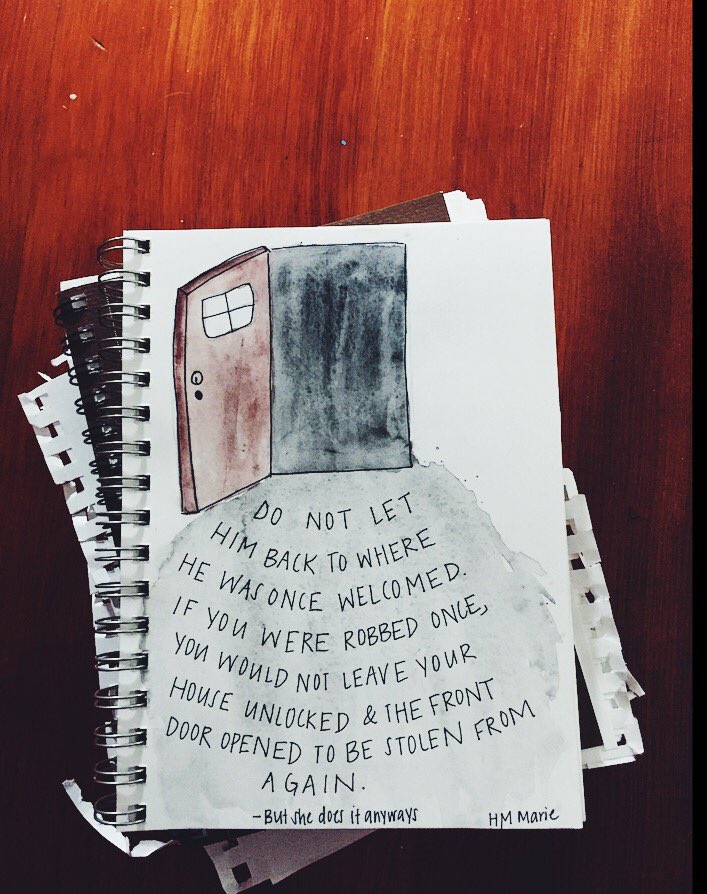 DO NOT LET
HIM BACK TO WHERE
HE WAS ONCE WELCOMED.
IF YOU WERE ROBBED ONCE,
YOU WOULD NOT LEAVE YOUR
HOUSE UNLOCKED & THE FRONT
DOOR OPENED TO BE STOLEN FROM
AGAIN.
-But she does it anyways
HM Marie